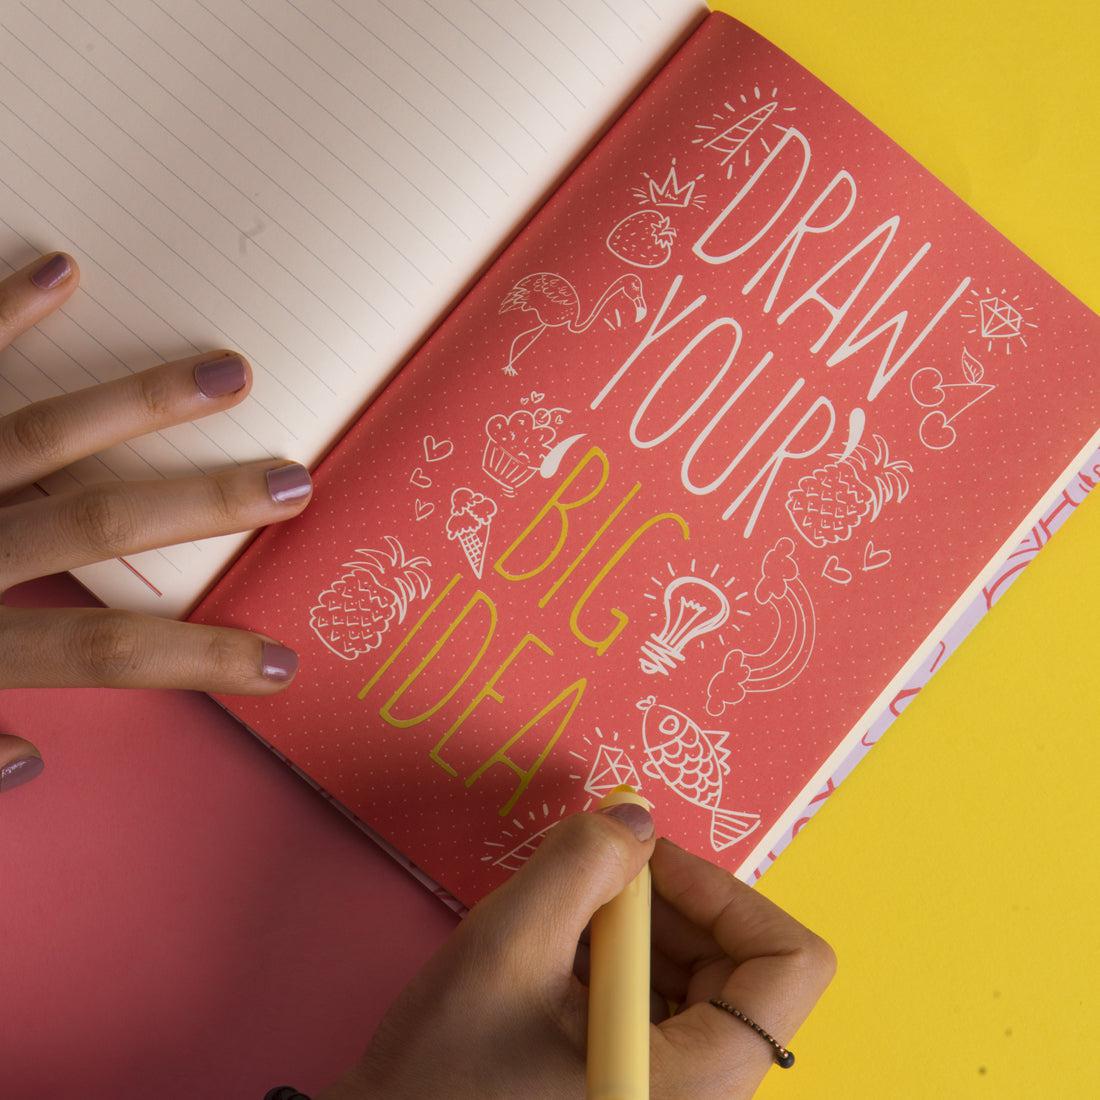 DRAW
YOUR
BIG
IDEA